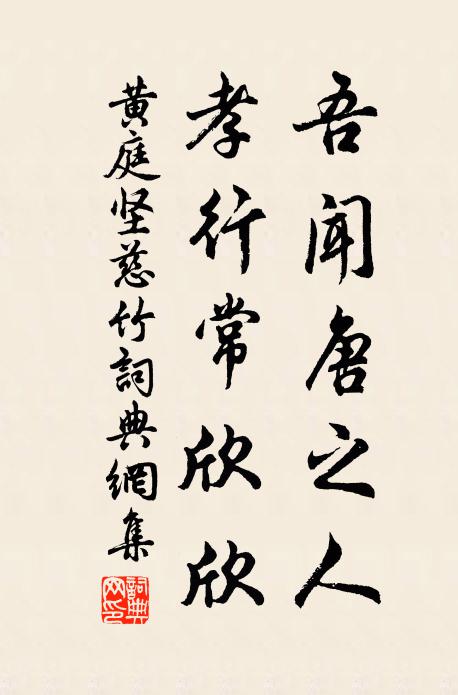 吾闻唐之人
孝行常欣欣
黄庭坚慈竹詞典網集
詞典网印